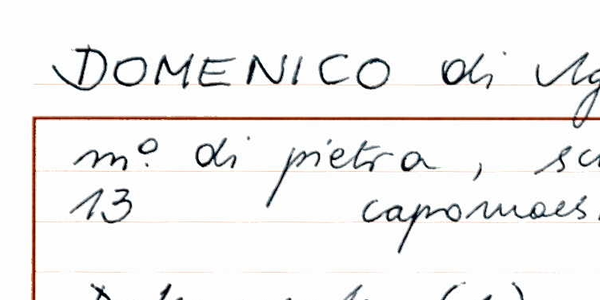 DOMENICO di
m.º di pietra,
13 capomaes